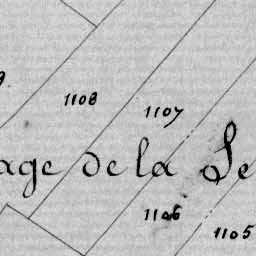 1108
1107
age de la Se
1106
1105